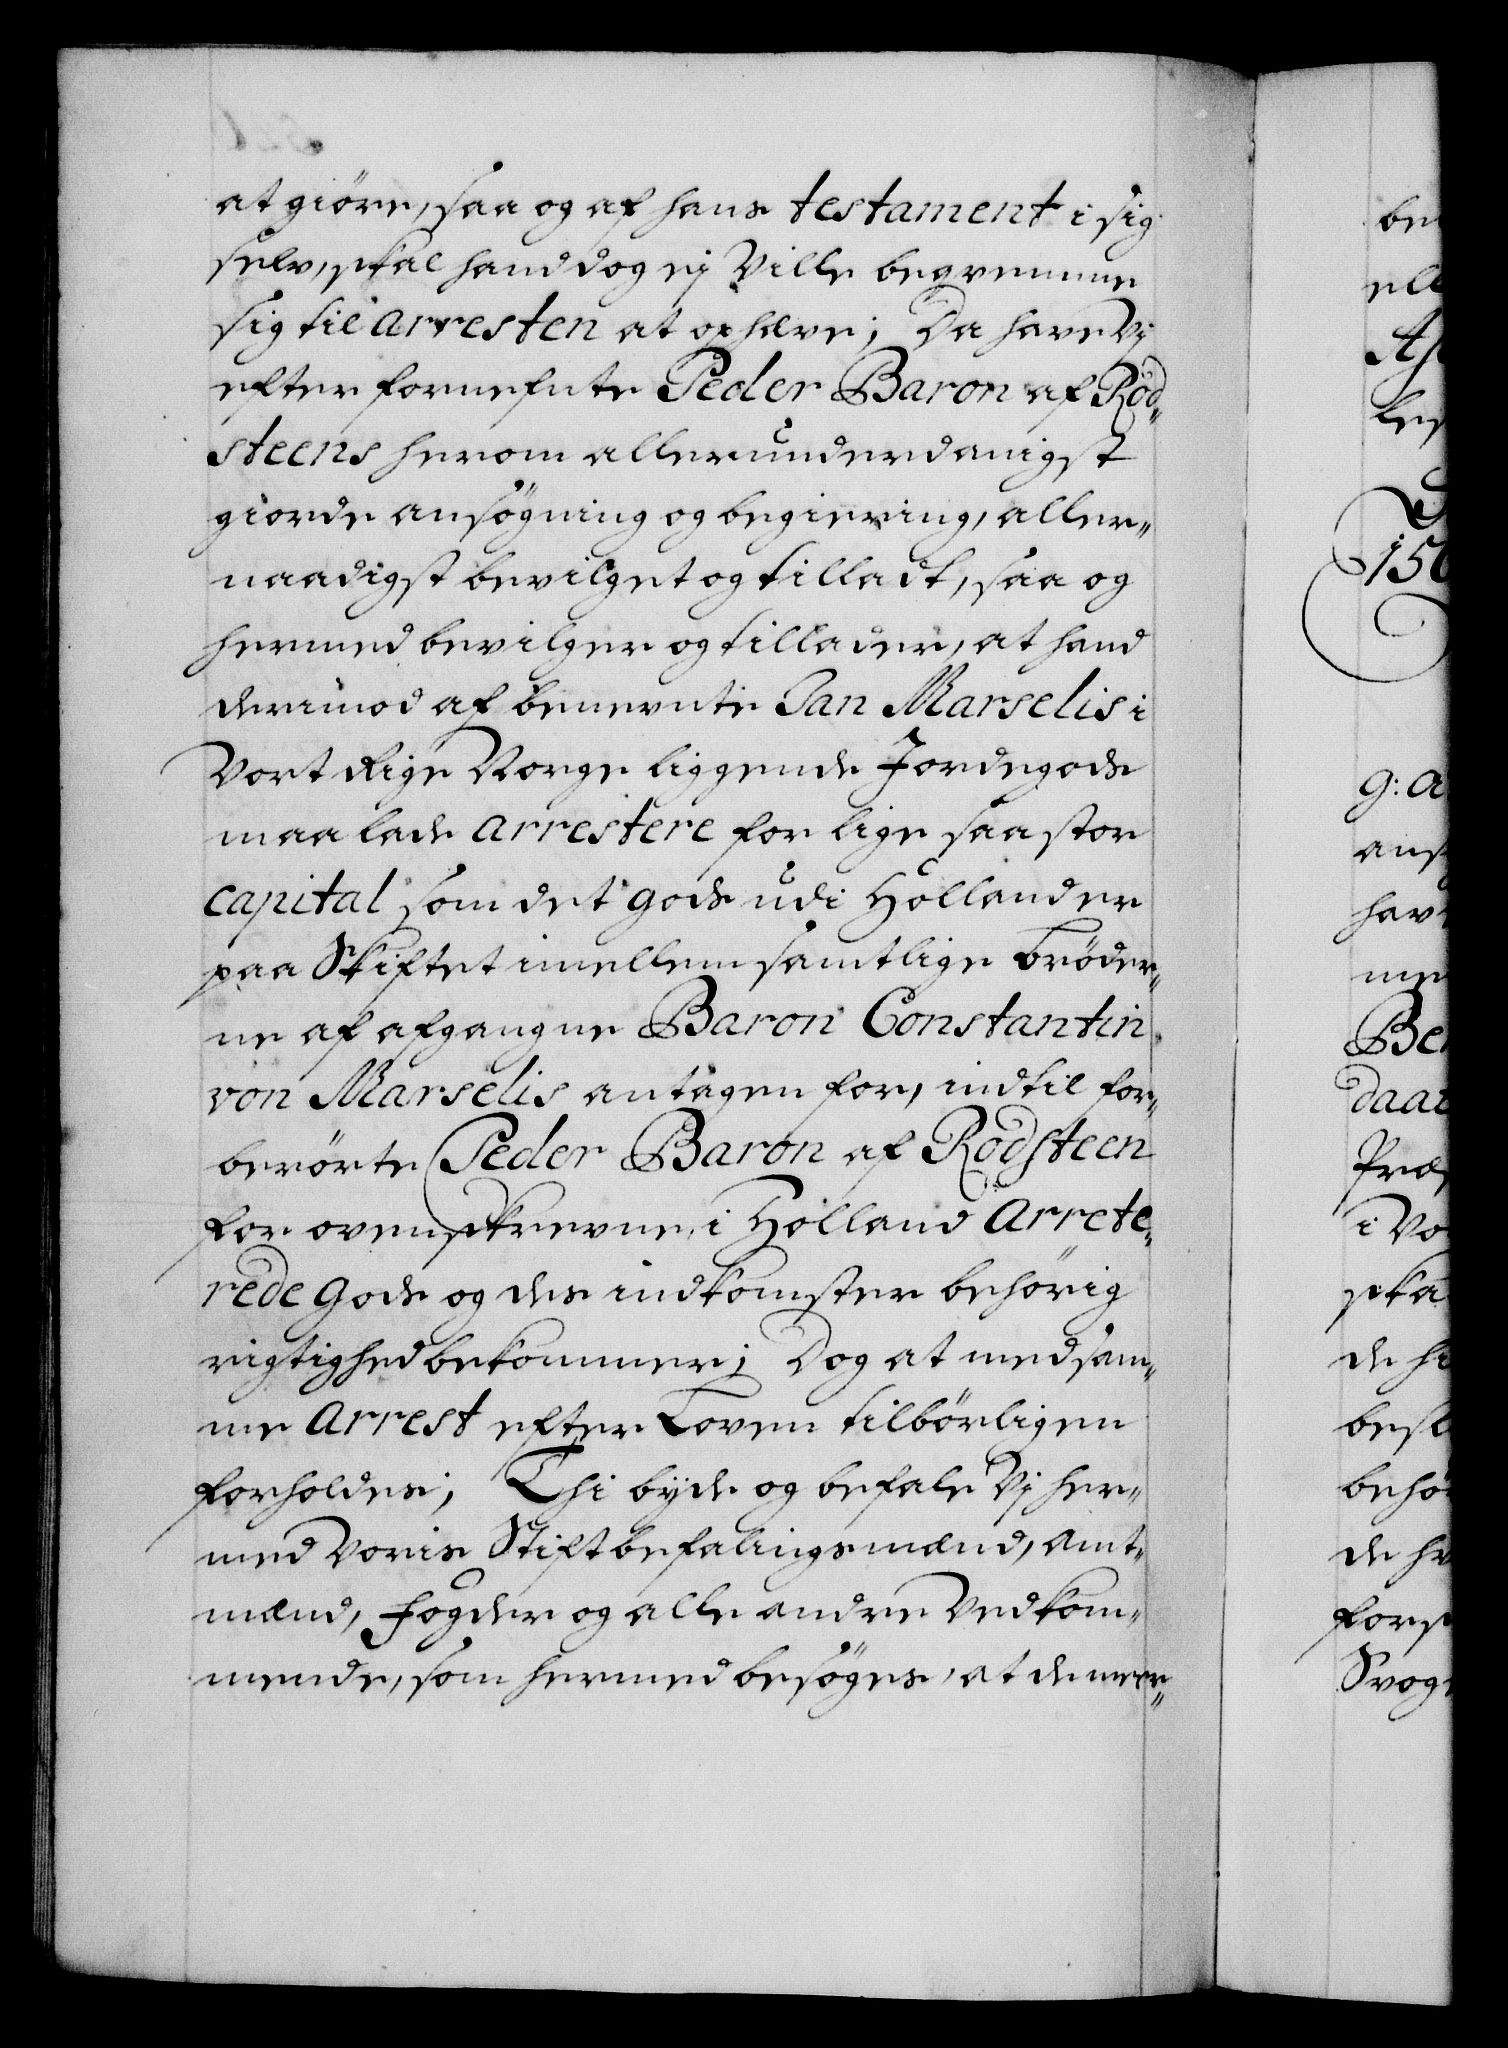 at giöre, saa og af hans testament i sig
selv, skal hand dog ej Ville beqvemme
sig til Arresten at ophæve; Da have Vj
efter fornefnte Peder Baron af Rod„
steens herom allerunderdanigst
giorde ansögning og begiering, aller„
naadigst bevilget og tilladt, saa og
hermed bevilger og tillader, at hand
derimod af benevnte Jan Marselis i
Vort Rige Norge liggende Jordegods
maa lade arrestere for lige saa stor
capital som det gods udi Hollander
paa Skiftet imellem samtlige Bröder„
ne af afgangne Baron Constantin
von Marselis antagen for, indtil for„
berörte Peder Baron af Rodsteen
for ovenskrevne i Holland Arrete„
rede Gods og des indkomster behörig
rigtighed bekommer; Dog at med sam„
me Arrest efter Loven tilbörligen
forholdes; Thi byde og befale Vj her„
med Voris Stiftbefalingsmænd, Amt„
mænd, Fogder og alle andre Vedkom„
mende, som hermed besöges, at de meer„